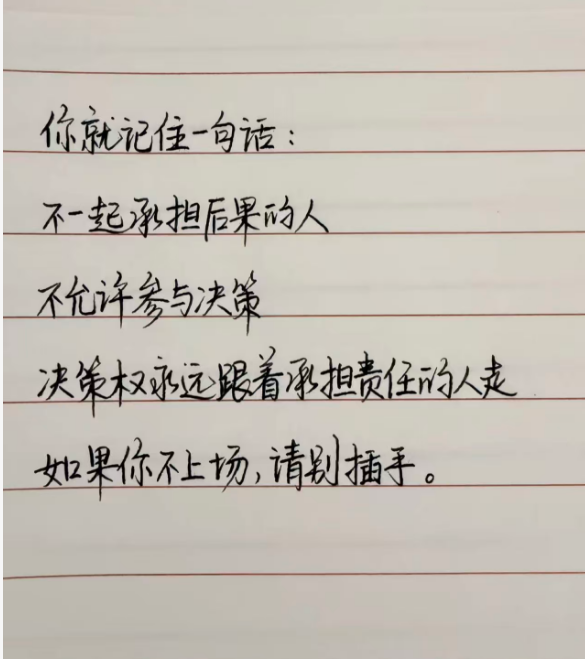 你就记住一句话：
不一起承担后果的人
不允许参与决策
决策权永远跟着承担责任的人走
如果你不上场，请别插手。